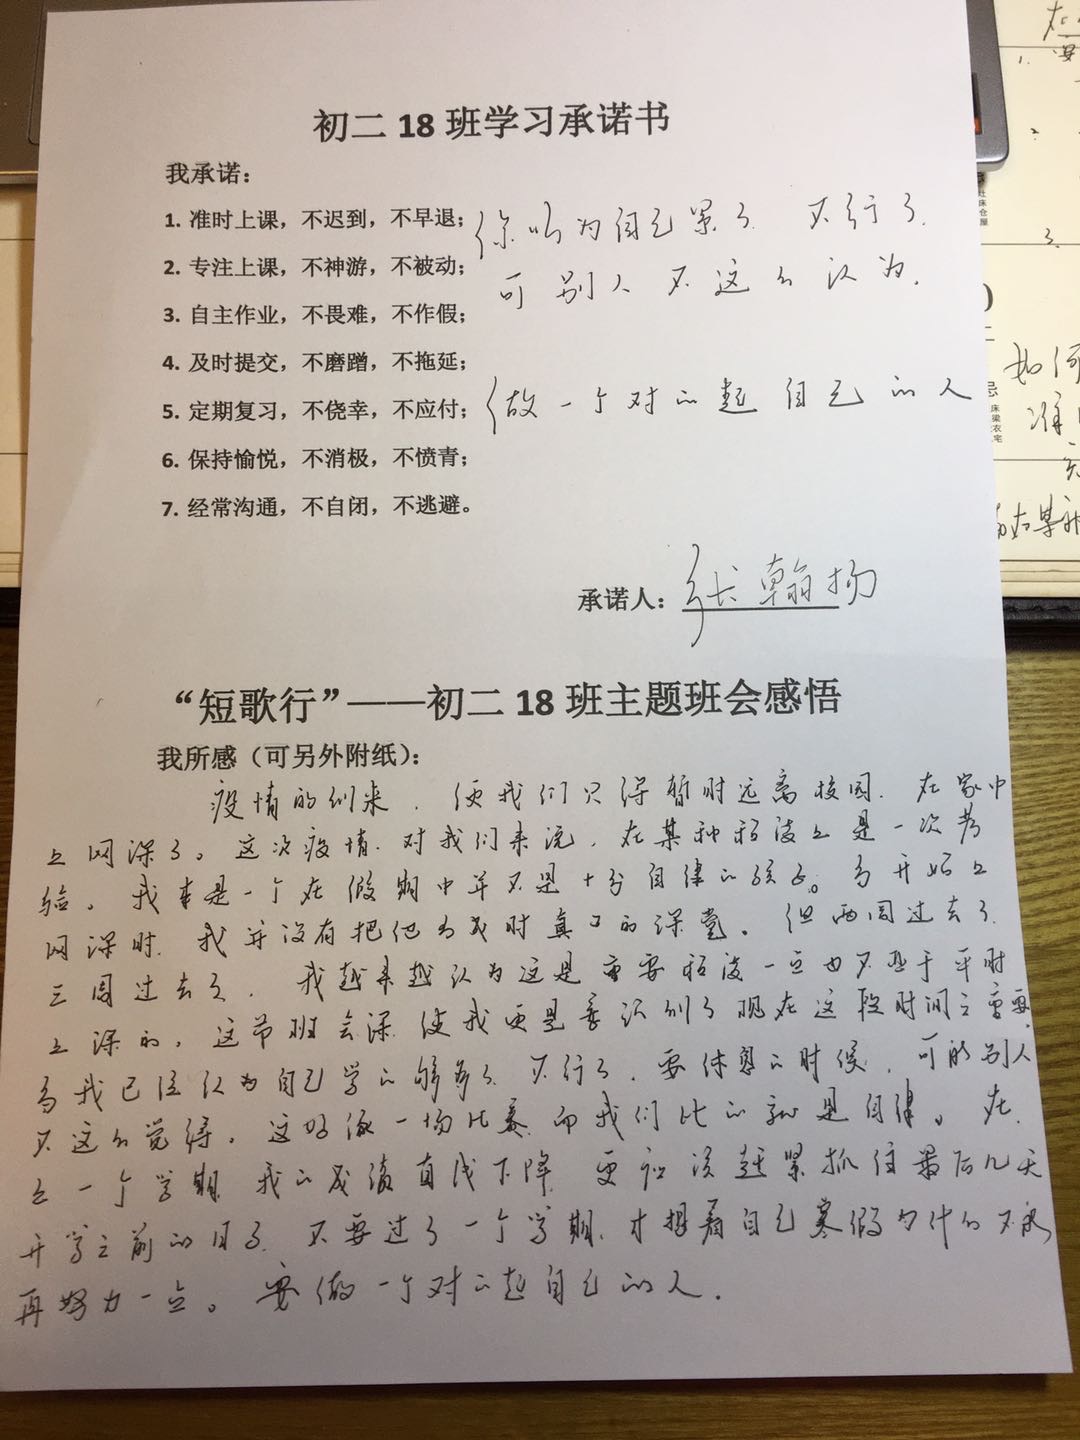 初二 18 班学习承诺书
我承诺：
1. 准时上课，不迟到，不早退；
你认为自己累了 不行了.
2. 专注上课，不神游，不被动；
可别人不这么认为.
3. 自主作业，不畏难，不作假；
4. 及时提交，不磨蹭，不拖延；
5. 定期复习，不侥幸，不应付；
做一个对的起自己的人
6. 保持愉悦，不消极，不愤青；
7. 经常沟通，不自闭，不逃避。
承诺人：张翰扬
“短歌行”——初二 18 班主题班会感悟
我所感（可另外附纸）：
疫情的到来，使我们只得暂时远离校园. 在家中
上网课了。这次疫情.对我们来说，在某种程度上是一次考
验。我本是一个在假期中并不是十分自律的孩子。刚开始上
网课时.我并没有把他当成时真正的课堂。但两周过去了.
三周过去了，我越来越认为这是重要程度一点也不亚于平时
上课的，这节班会课.使我更是意识到了现在这段时间之重要.
当我已经认为自己学的够多了.不行了.要休息的时候，可能别人
不这么觉得。这好像一场比赛.而我们比的就是自律。在
上一个学期.我的成绩直线下降.更应该赶紧抓住最后几天
开学之前的日子.不要过了一个学期.才想着自己寒假为什么不
再努力一点。要做一个对的起自己的人.
如何